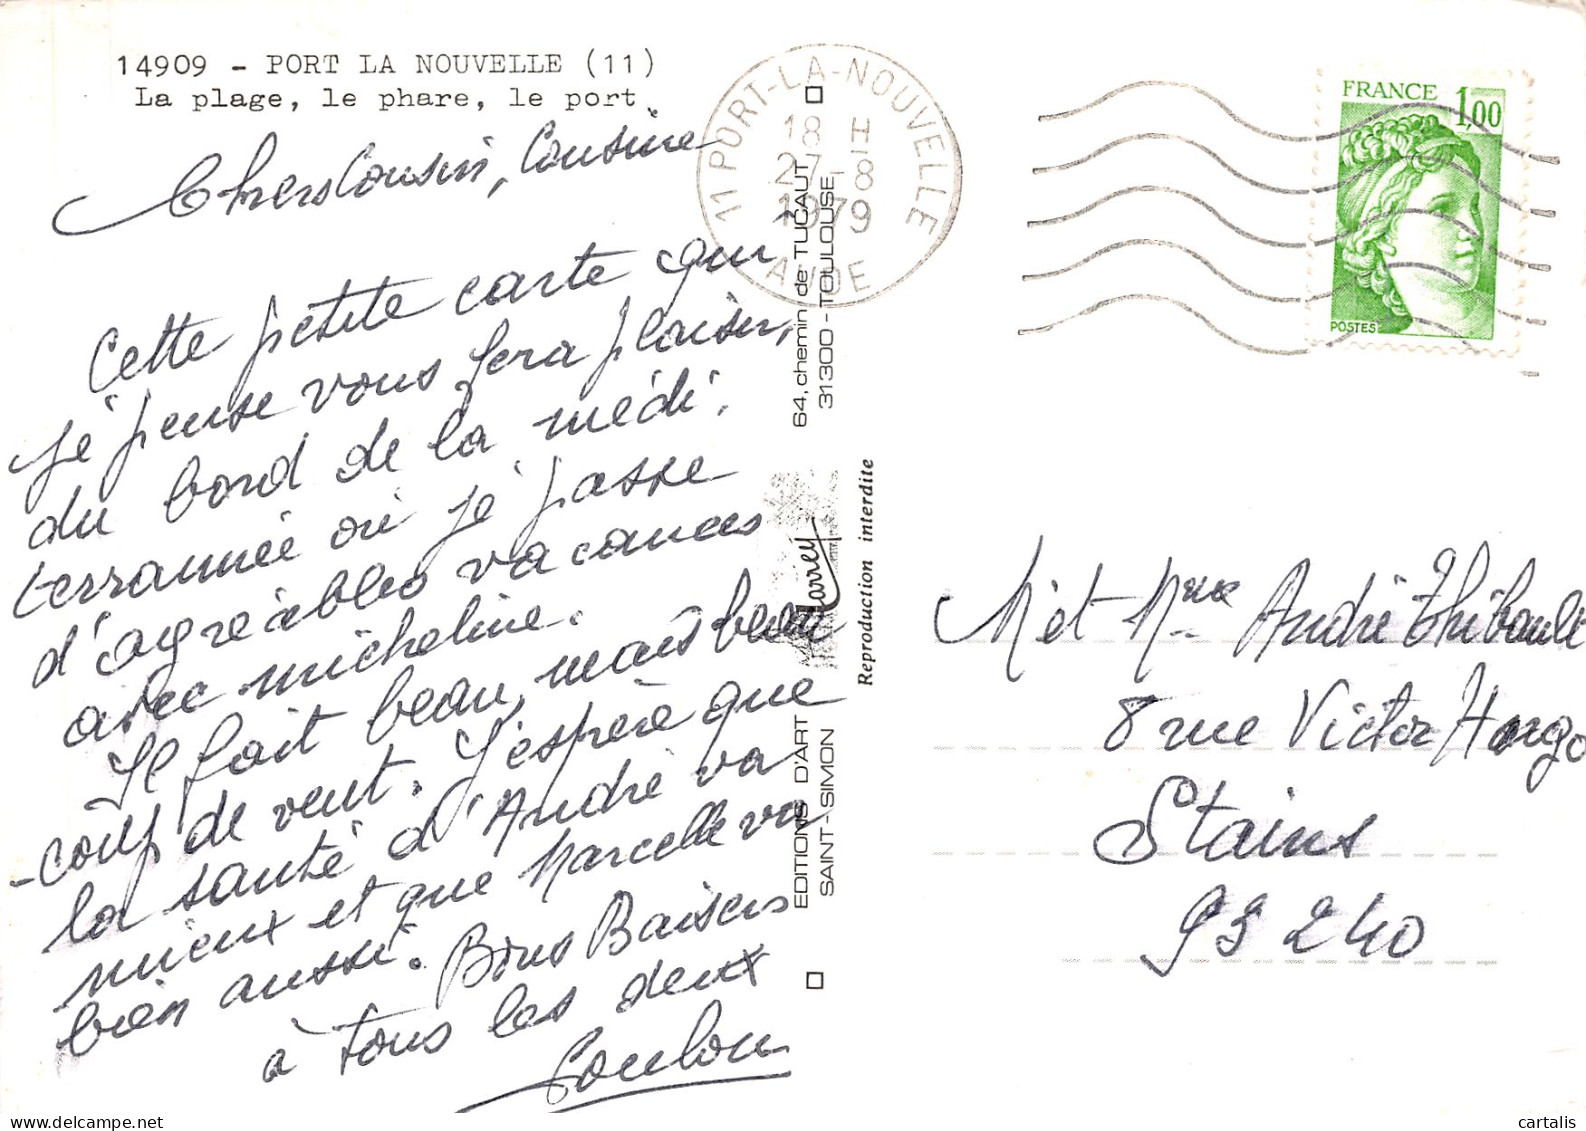 14909 - PORT LA NOUVELLE (11)
La plage, le phare, le port.
Chers Cousin, Cousine
Cette petite carte qui
je pense vous fera plaisir,
du bord de la médi.
terrannée où je passe
d'agréables vacances
avec micheline.
Il fait beau, mais beau
-coup de vent. J'espère que
la santé d'André va
mieux et que Marcelle va
bien aussi. Bons Baisers
à tous les deux
Loulou
11 PORT-LA-NOUVELLE
18 H
27-8
1979
AUDE
64, chemin de TUCAUT
31300 - TOULOUSE
Reproduction interdite
EDITIONS D'ART
SAINT-SIMON
FRANCE 1,00
POSTES
M et Mme André Thibault
8 rue Victor Hugo
Stains
93 240
cartalis